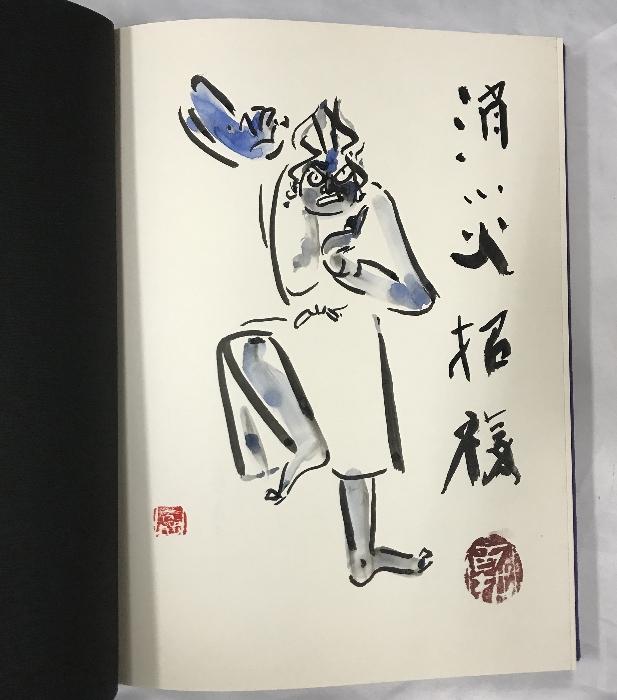 消災招福